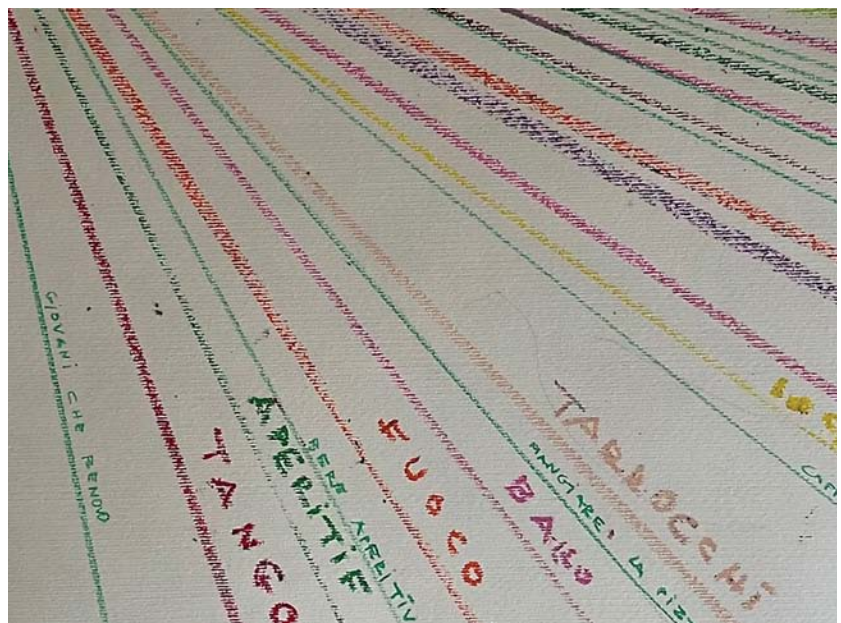 GIOVANI CHE
TANGO
APERITIF
BERE APERITIV
FUOCO
BALLO
MANGIARE: LA PIZ
TARLOCCHI